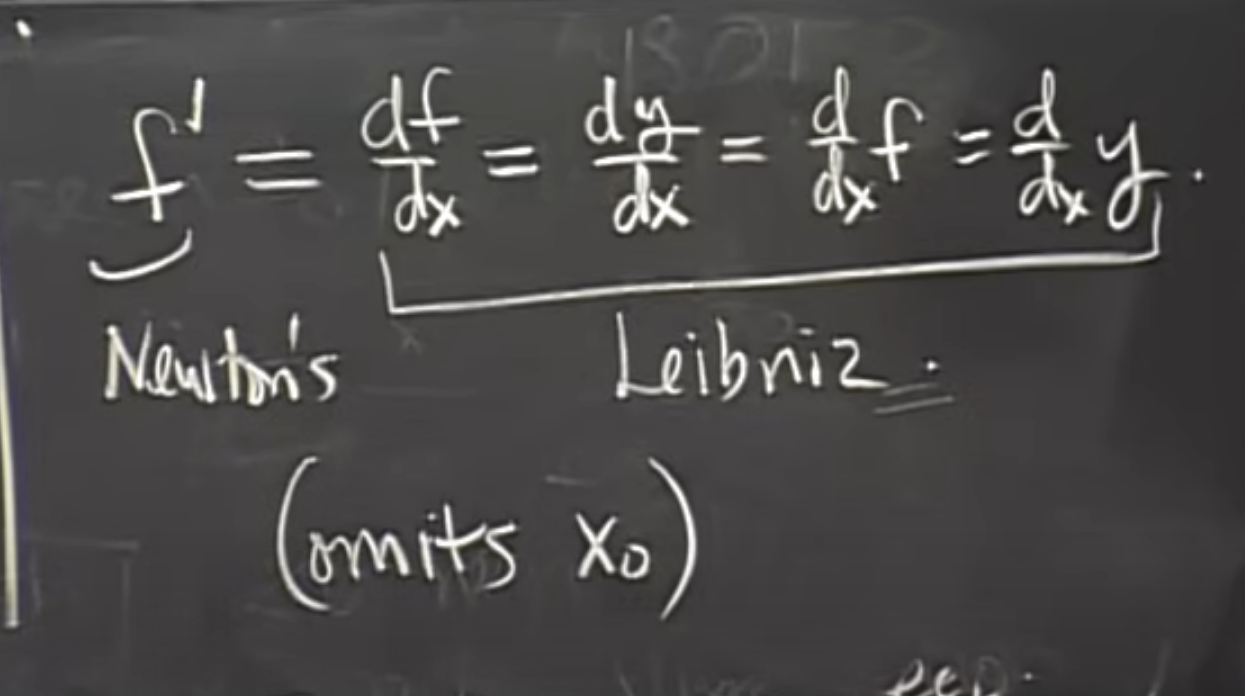 f' = df/dx = dy/dx = d/dx f = d/dx y.
Newton's Leibniz.
(omits x₀)